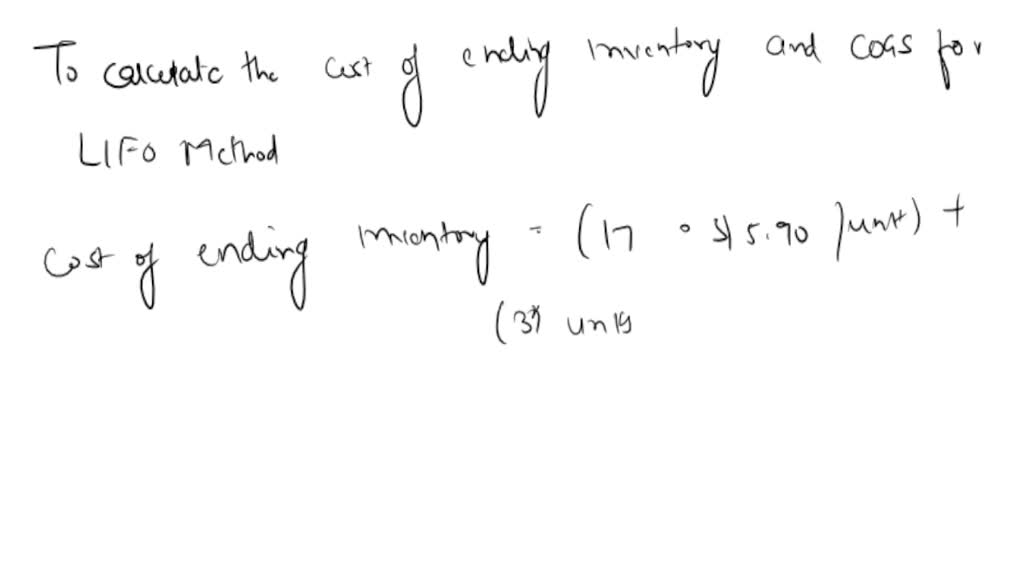 To calculate the cost of ending inventory and COGS for
LIFO Method
Cost of ending inventory = (17 • $15.90 /unit) +
(37 units